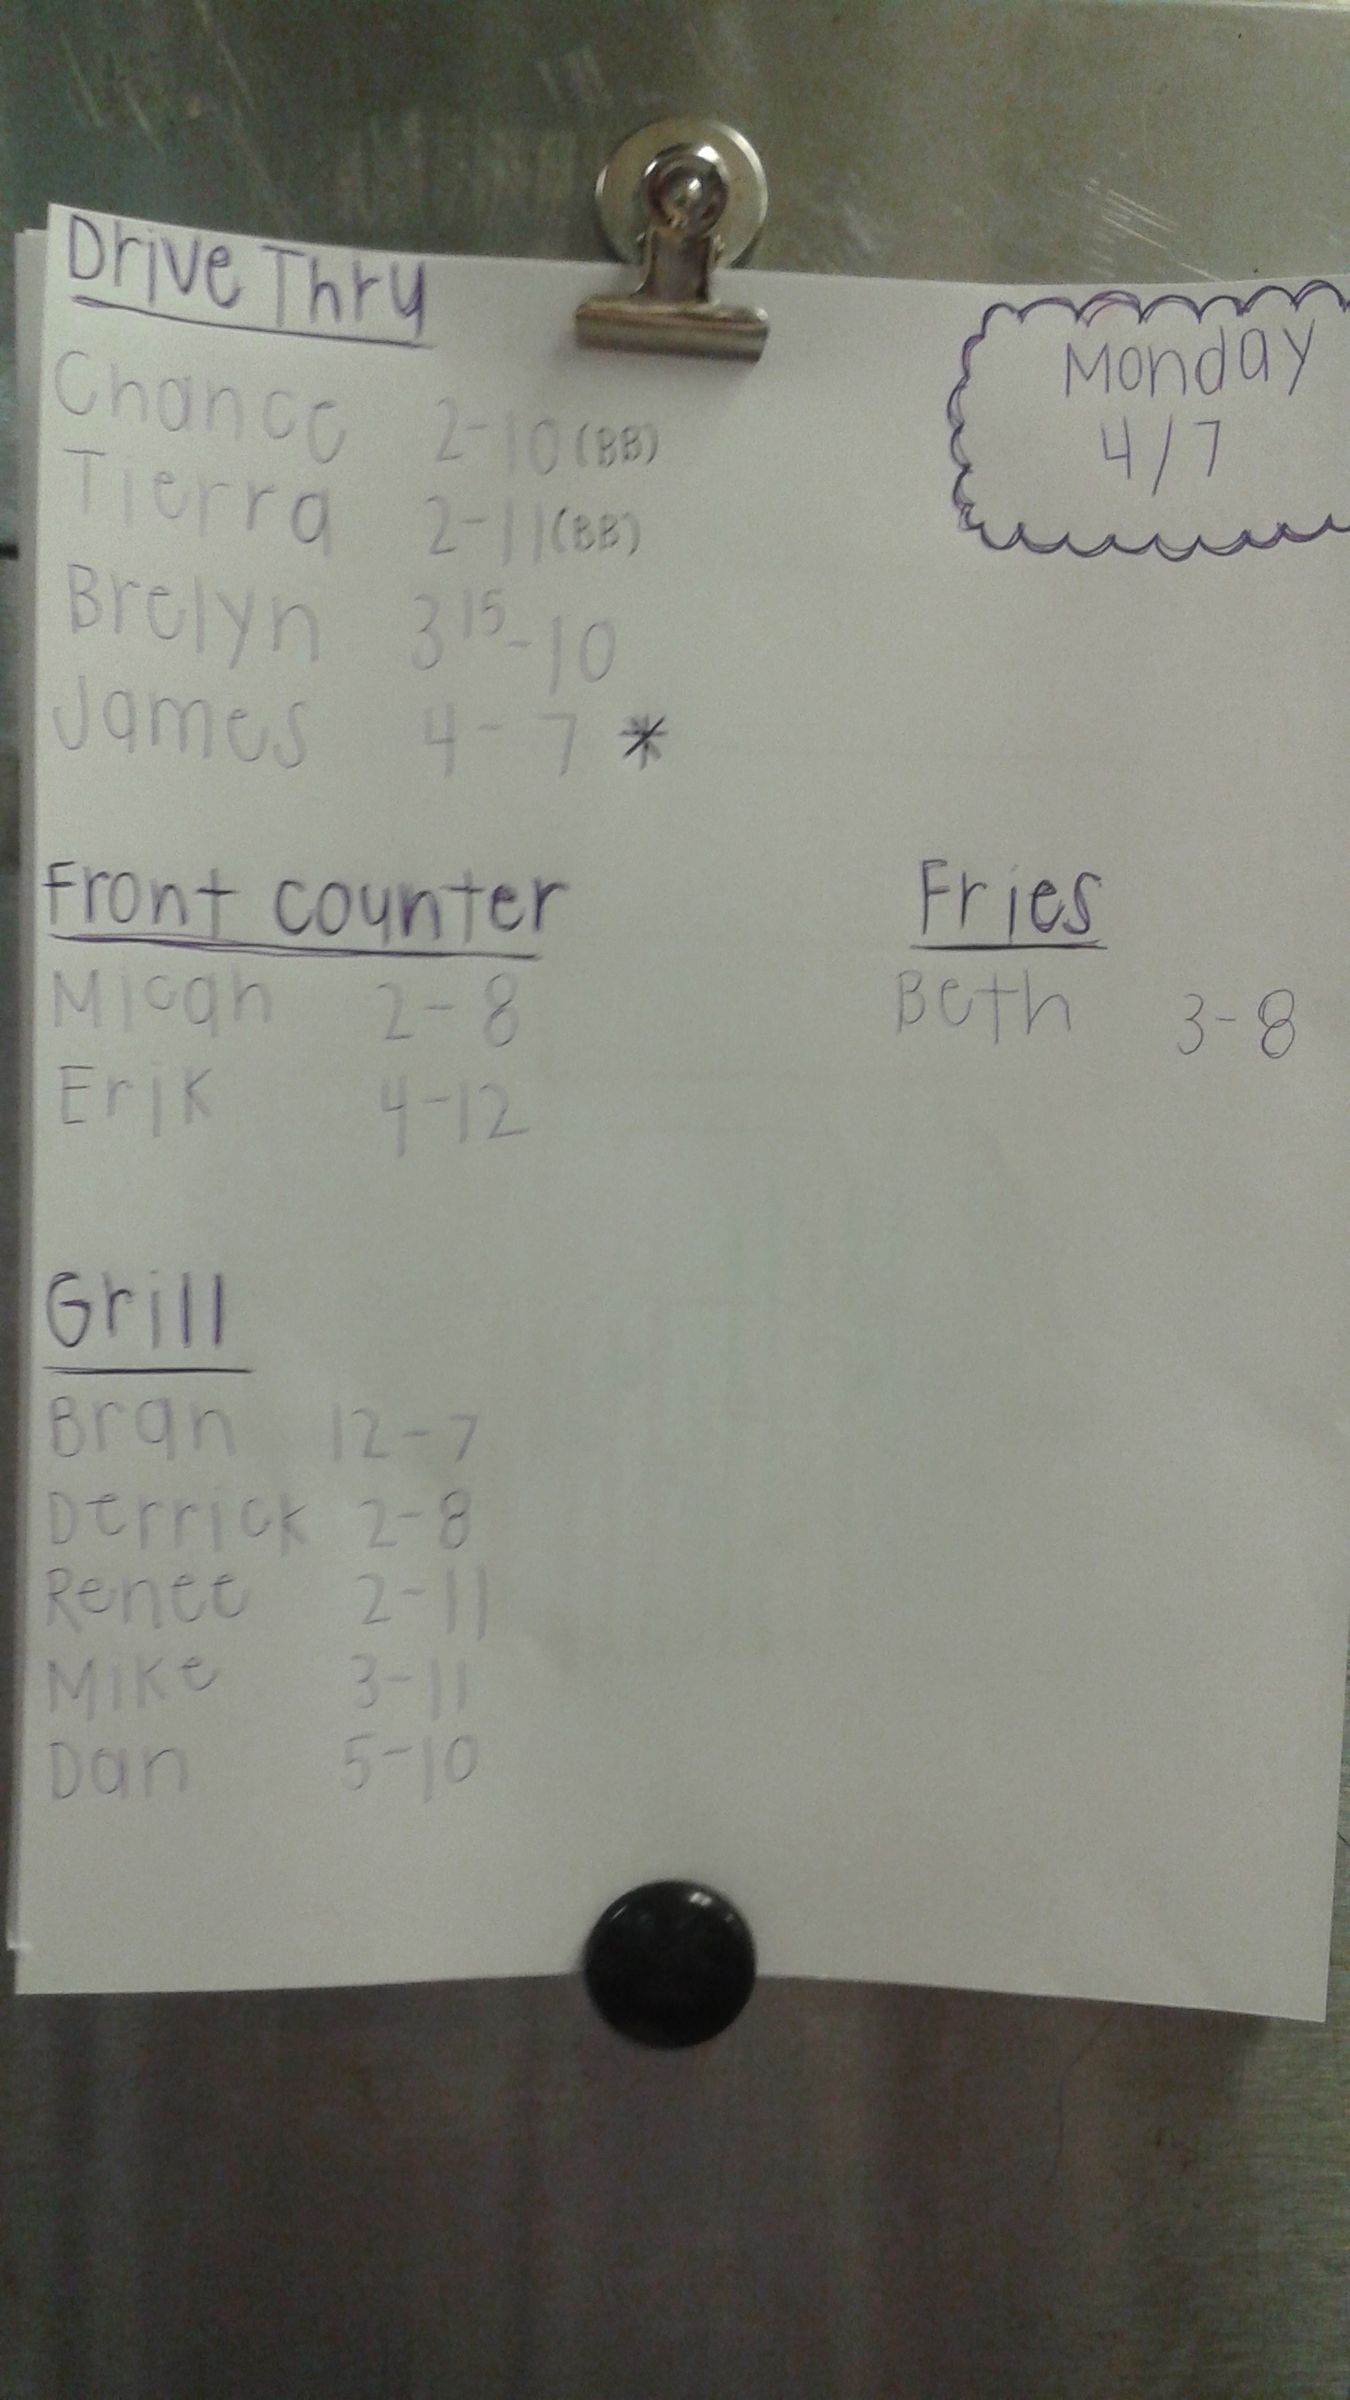 Drive Thru
Chance 2-10 (BB)
Tierra 2-11 (BB)
Brelyn 3 15 - 10
James 4 - 7 *
Monday
4/7
Front counter
Micah 2-8
Erik 4-12
Fries
Beth 3-8
Grill
Bran 12-7
Derrick 2-8
Renee 2-11
Mike 3-11
Dan 5-10